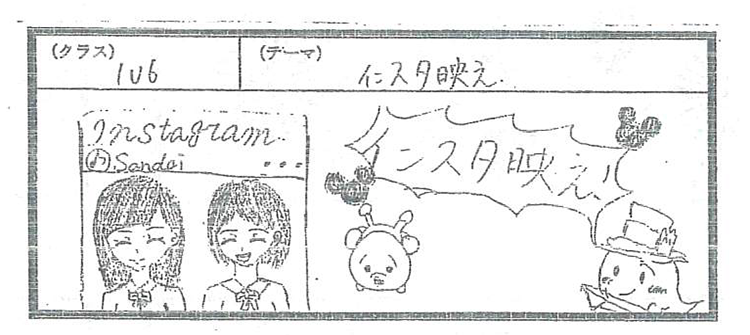 (クラス)
1υ6
(テーマ)
インスタ映え.
Instagram
Sandai
インスタ映え!!